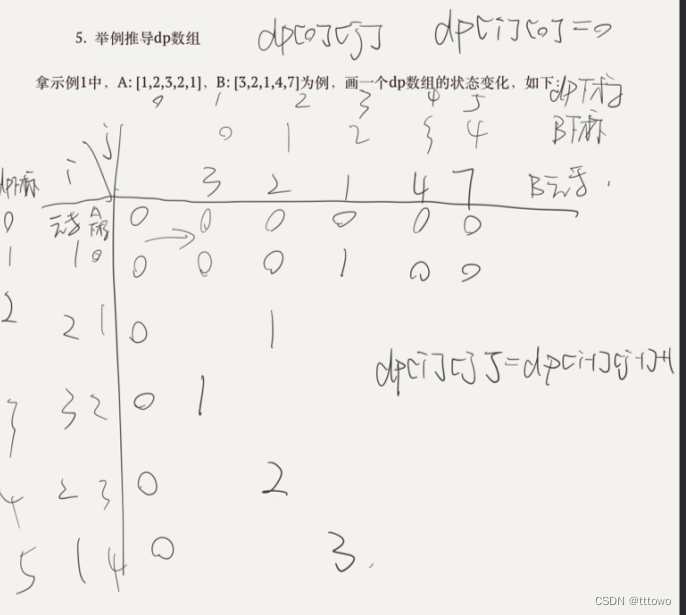 5. 举例推导dp数组 dp[0][j] dp[i][0]=0
拿示例1中，A: [1,2,3,2,1]，B: [3,2,1,4,7]为例，画一个dp数组的状态变化，如下：
0 1 2 3 4 5 dp下标
j 0 1 2 3 4 B下标
dp下标 i 3 2 1 4 7 B元素.
0 元素 A下标 0 0 0 0 0 0
1 1 0 0 0 0 1 0 0
2 2 1 0 1
dp[i][j]=dp[i-1][j-1]+1
3 3 2 0 1
4 2 3 0 2
5 1 4 0 3.
CSDN @tttowo